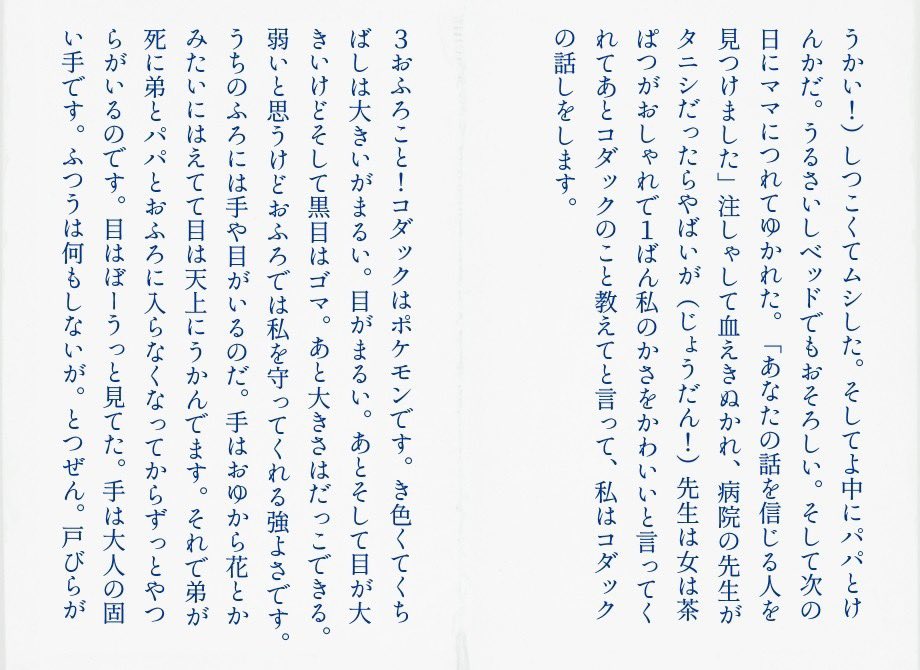 うかい！）しつこくてムシした。そしてよ中にパパとけ
んかだ。うるさいしベッドでもおそろしい。そして次の
日にママにつれてゆかれた。「あなたの話を信じる人を
見つけました」注しゃして血えきぬかれ、病院の先生が
タニシだったらやばいが（じょうだん！）先生は女は茶
ぱつがおしゃれで１ばん私のかさをかわいいと言ってく
れてあとコダックのこと教えてと言って、私はコダック
の話しをします。
３おふろこと！コダックはポケモンです。き色くてくち
ばしは大きいがまるい。目がまるい。あとそして目が大
きいけどそして黒目はゴマ。あと大きさはだっこできる。
弱いと思うけどおふろでは私を守ってくれる強よさです。
うちのふろには手や目がいるのだ。手はおゆから花とか
みたいにはえてて目は天上にうかんでます。それで弟が
死に弟とパパとおふろに入らなくなってからずっとやつ
らがいるのです。目はぼーうっと見てた。手は大人の固
い手です。ふつうは何もしないが。とつぜん。戸びらが